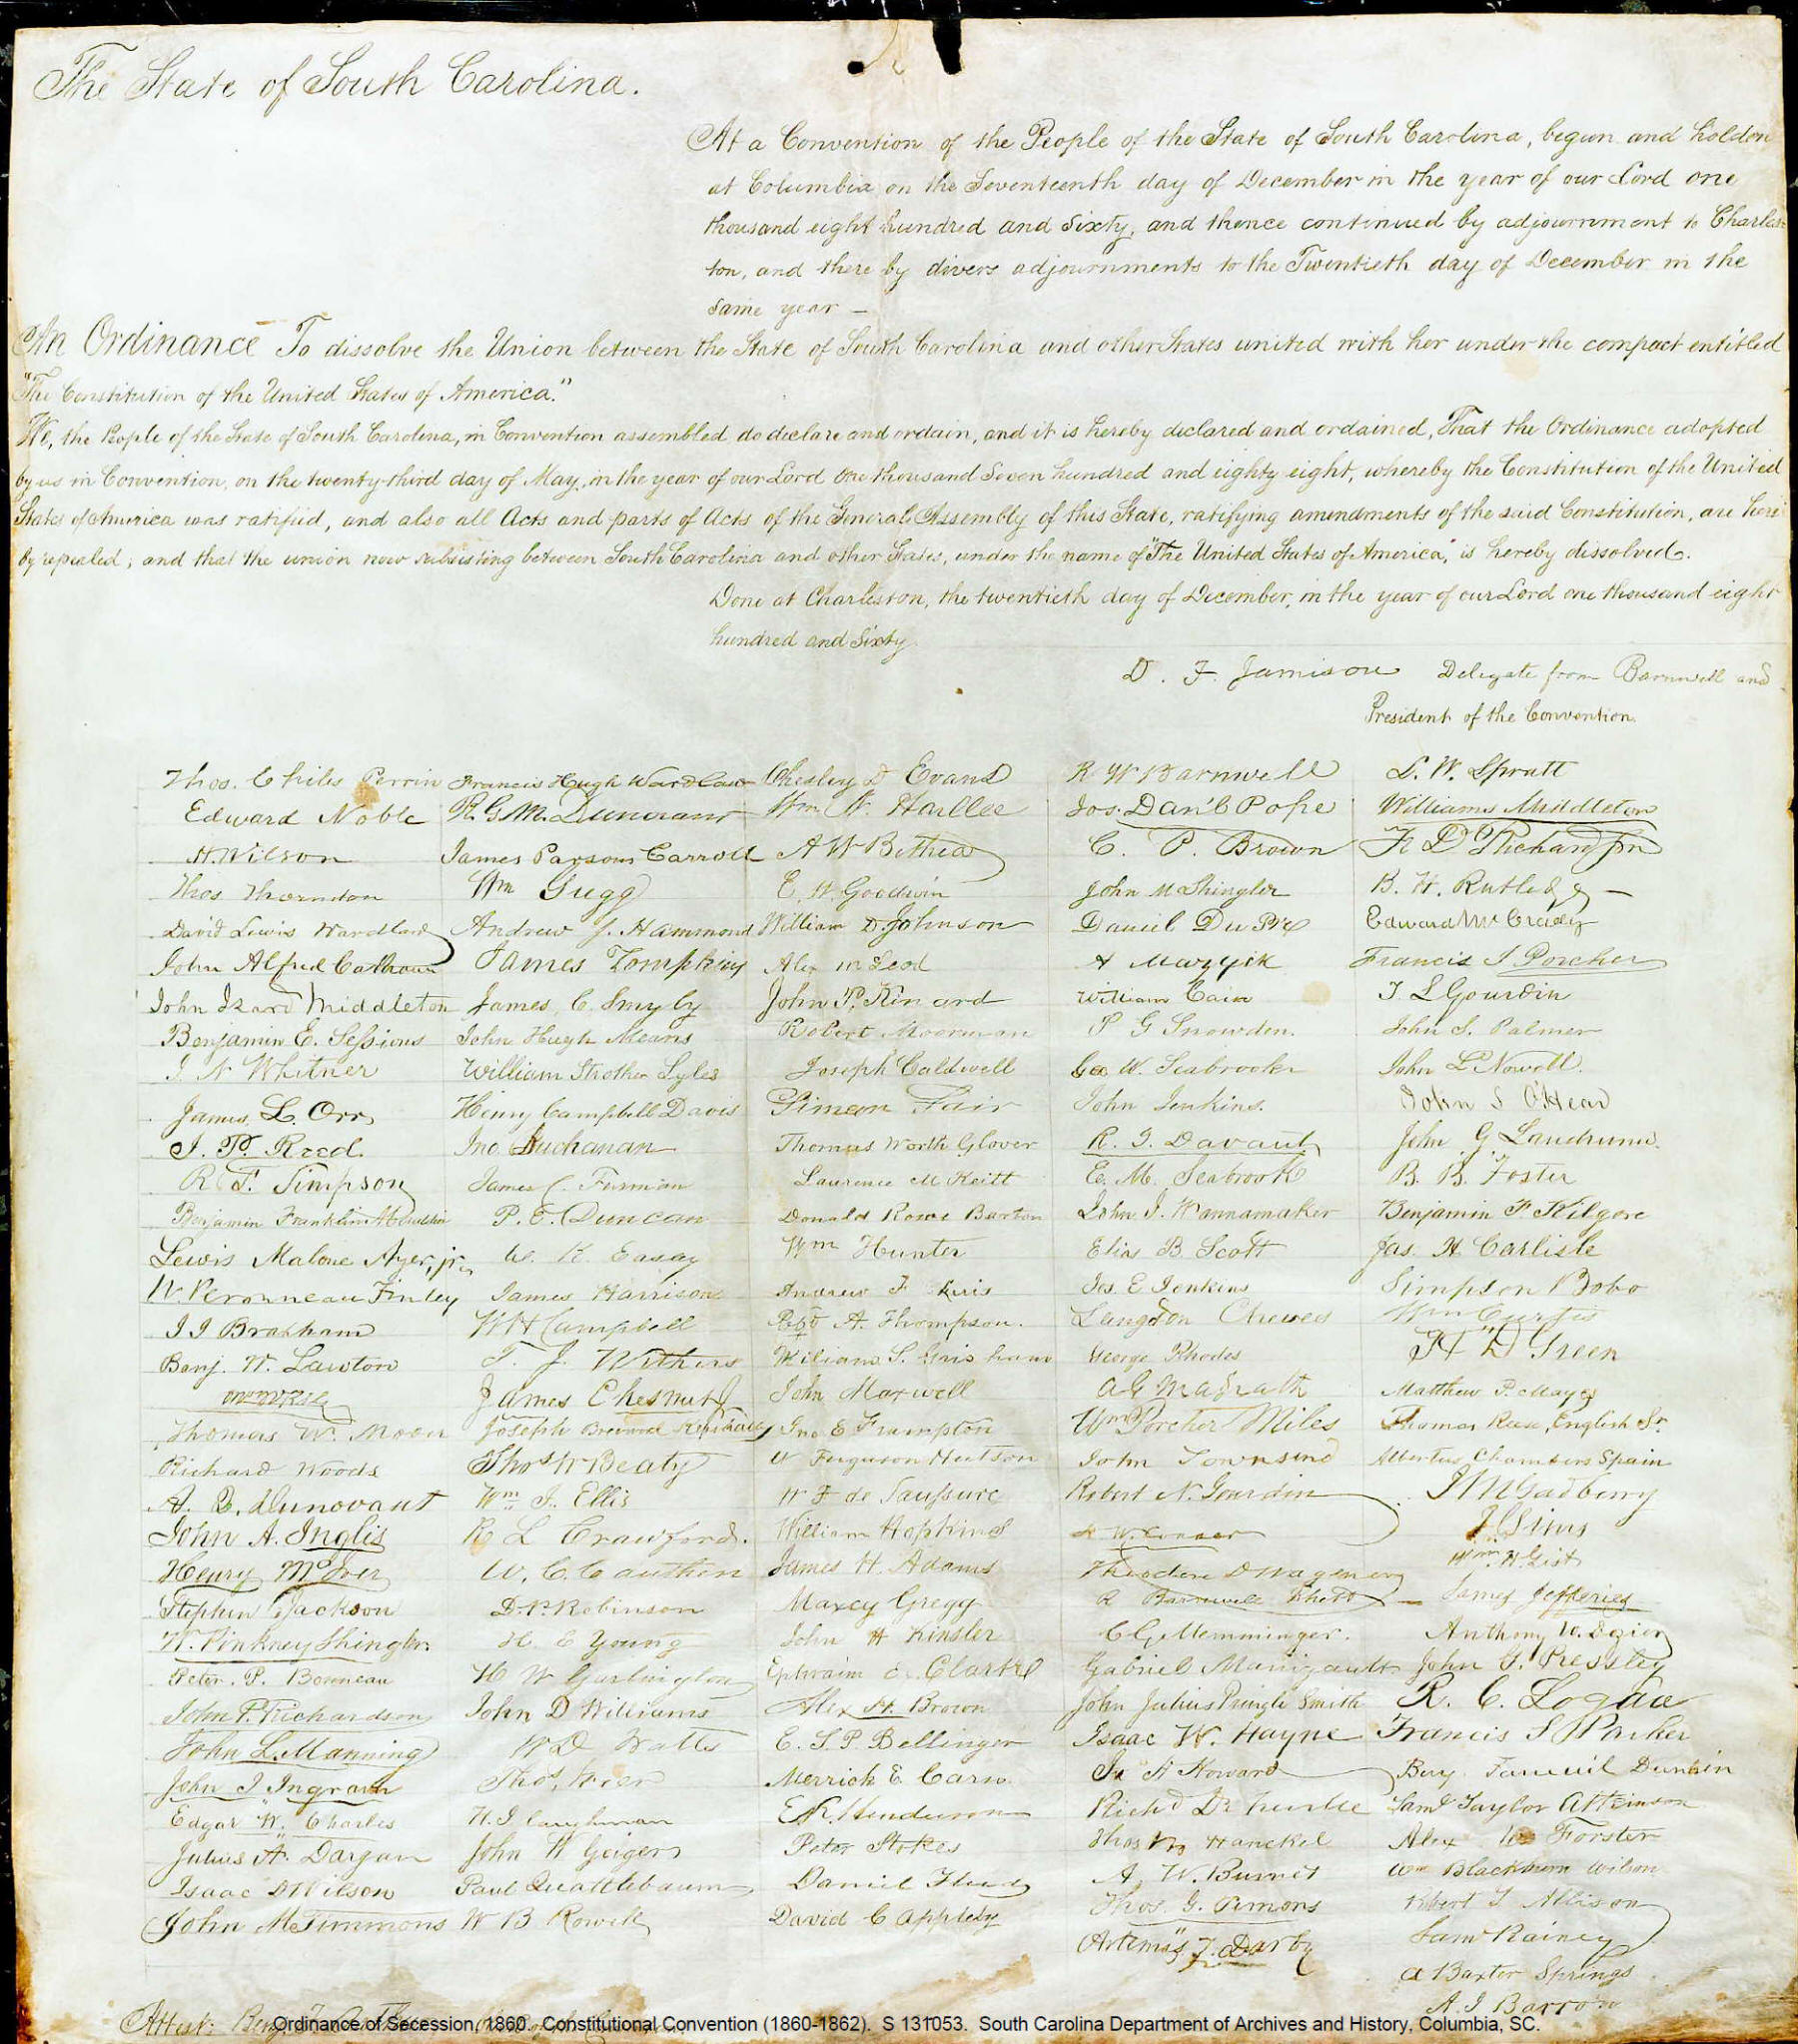 The State of South Carolina.
At a Convention of the People of the State of South Carolina, begun and holden
at Columbia on the Seventeenth day of December in the year of our Lord one
thousand eight hundred and sixty, and thence continued by adjournment to Charles
ton, and there by divers adjournments to the Twentieth day of December in the
same year —
An Ordinance To dissolve the Union between the State of South Carolina and other States united with her under the compact entitled
"The Constitution of the United States of America."
We, the People of the State of South Carolina, in Convention assembled do declare and ordain, and it is hereby declared and ordained, That the Ordinance adopted
by us in Convention, on the twenty-third day of May, in the year of our Lord one thousand seven hundred and eighty eight, whereby the Constitution of the United
States of America was ratified, and also all Acts and parts of Acts of the General Assembly of this State, ratifying amendments of the said Constitution, are here
by repealed; and that the union now subsisting between South Carolina and other States, under the name of "The United States of America," is hereby dissolved.
Done at Charleston, the twentieth day of December, in the year of our Lord one thousand eight
hundred and sixty.
D. F. Jamison Delegate from Barnwell and
President of the Convention
Thos. Chiles Perrin
Edward Noble
J. H. Wilson
Thos Thomson
David Lewis Wardlaw
John Alfred Calhoun
John Izard Middleton
Benjamin E. Sessions
J. N. Whitner
James L. Orr
J. P. Reed.
R. F. Simpson
Benjamin Franklin Mauldin
Lewis Malone Ayer, jr.
W. Peronneau Finley
J. J. Brabham
Benj. W. Lawton
Thomas W. Moore
Richard Woods
A. Q. Dunovant
John A. Inglis
Henry McIver
Stephen Jackson
W. Pinkney Shingler.
Peter. P. Bonneau
John P. Richardson
John L. Manning
John I Ingram
Edgar W. Charles
Julius A. Dargan
Isaac D Wilson
John M Timmons
Francis Hugh Wardlaw
R. G. M. Dunovant
James Parsons Carroll
Wm Gregg
Andrew J. Hammond
James Tompkins
James C. Smyly
John Hugh Means
William Strother Lyles
Henry Campbell Davis
Jno. Buchanan
James C. Furman
P. E. Duncan
W. K. Easley
James Harrison
W H Campbell
T. J. Withers
James Chesnut Jr
Joseph Brevard Kershaw
Thos W Beaty
Wm J. Ellis
R L Crawford.
W. C. Cauthen
D. P. Robinson
H. C Young
H W Garlington
John D Williams
W D Watts
Thos, Wier
H. I. Caughman
John W Geiger
Paul Quattlebaum
W B Rowell
Chesley D Evans
Wm W. Harllee
A W Bethea
E. W. Goodwin
William D. Johnson
Alex McLeod
John P. Kinard
Robert Moorman
Joseph Caldwell
Simeon Fair
Thomas Worth Glover
Laurence M Keitt
Donald Rowe Barton
Wm Hunter
Andrew F Lewis
Robt A. Thompson.
William S. Grisham
John Maxwell
Jno E Frampton
W Ferguson Hutson
W F de Saussure
William Hopkins
James H. Adams
Maxcy Gregg
John H Kinsler
Ephraim M. Clarke
Alex H. Brown
E. S. P. Bellinger
Merrick E. Carn
E. R. Henderson
Peter Stokes
Daniel Flud
David C Appleby
R W Barnwell
Jos. Dan'l Pope
C. P. Brown
John M Shingler
Daniel DuPre
A Mazyck
William Cain
P G Snowden.
Geo W. Seabrook
John Jenkins.
R. J. Davant
E. M. Seabrook
John J. Wannamaker
Elias B. Scott
Jos. E Jenkins
Langdon Cheves
George Rhodes
A G Magrath
Wm Porcher Miles
John Townsend
Robert N. Gourdin
H W. Conner
Theodore D Wagener
R Barnwell Rhett
C G. Memminger.
Gabriel Manigault
John Julius Pringle Smith
Isaac W. Hayne
Jn H Howard
Richd De Treville
Thos M. Hanckel
A. W. Burnet
Thos. G. Simons
Artemas T. Darby
L. W. Spratt
Williams Middleton
F. D. Richardson
B. H. Rutledge
Edward McCrady
Francis J Porcher
T. L Gourdin
John S. Palmer
John L Nowell.
John S O'Hear
John G Landrum.
B. B. Foster
Benjamin F. Kilgore
Jas. H Carlisle
Simpson Bobo
Wm Curtis
H D Green
Matthew P. Mayes
Thomas Reese English Sr.
Albertus Chambers Spain
J M Gadberry
J S Sims
Wm H. Gist
James Jefferies
Anthony W. Dozier
John G. Pressley
R. C. Logan
Francis S Parker
Benj. Faneuil Dunkin
Saml Taylor Atkinson
Alex M Forster
Wm Blackburn Wilson
Robert T Allison
Saml Rainey
A Baxter Springs
A. I Barron
Attest:
Ordinance of Secession, 1860. Constitutional Convention (1860-1862). S 131053. South Carolina Department of Archives and History, Columbia, SC.